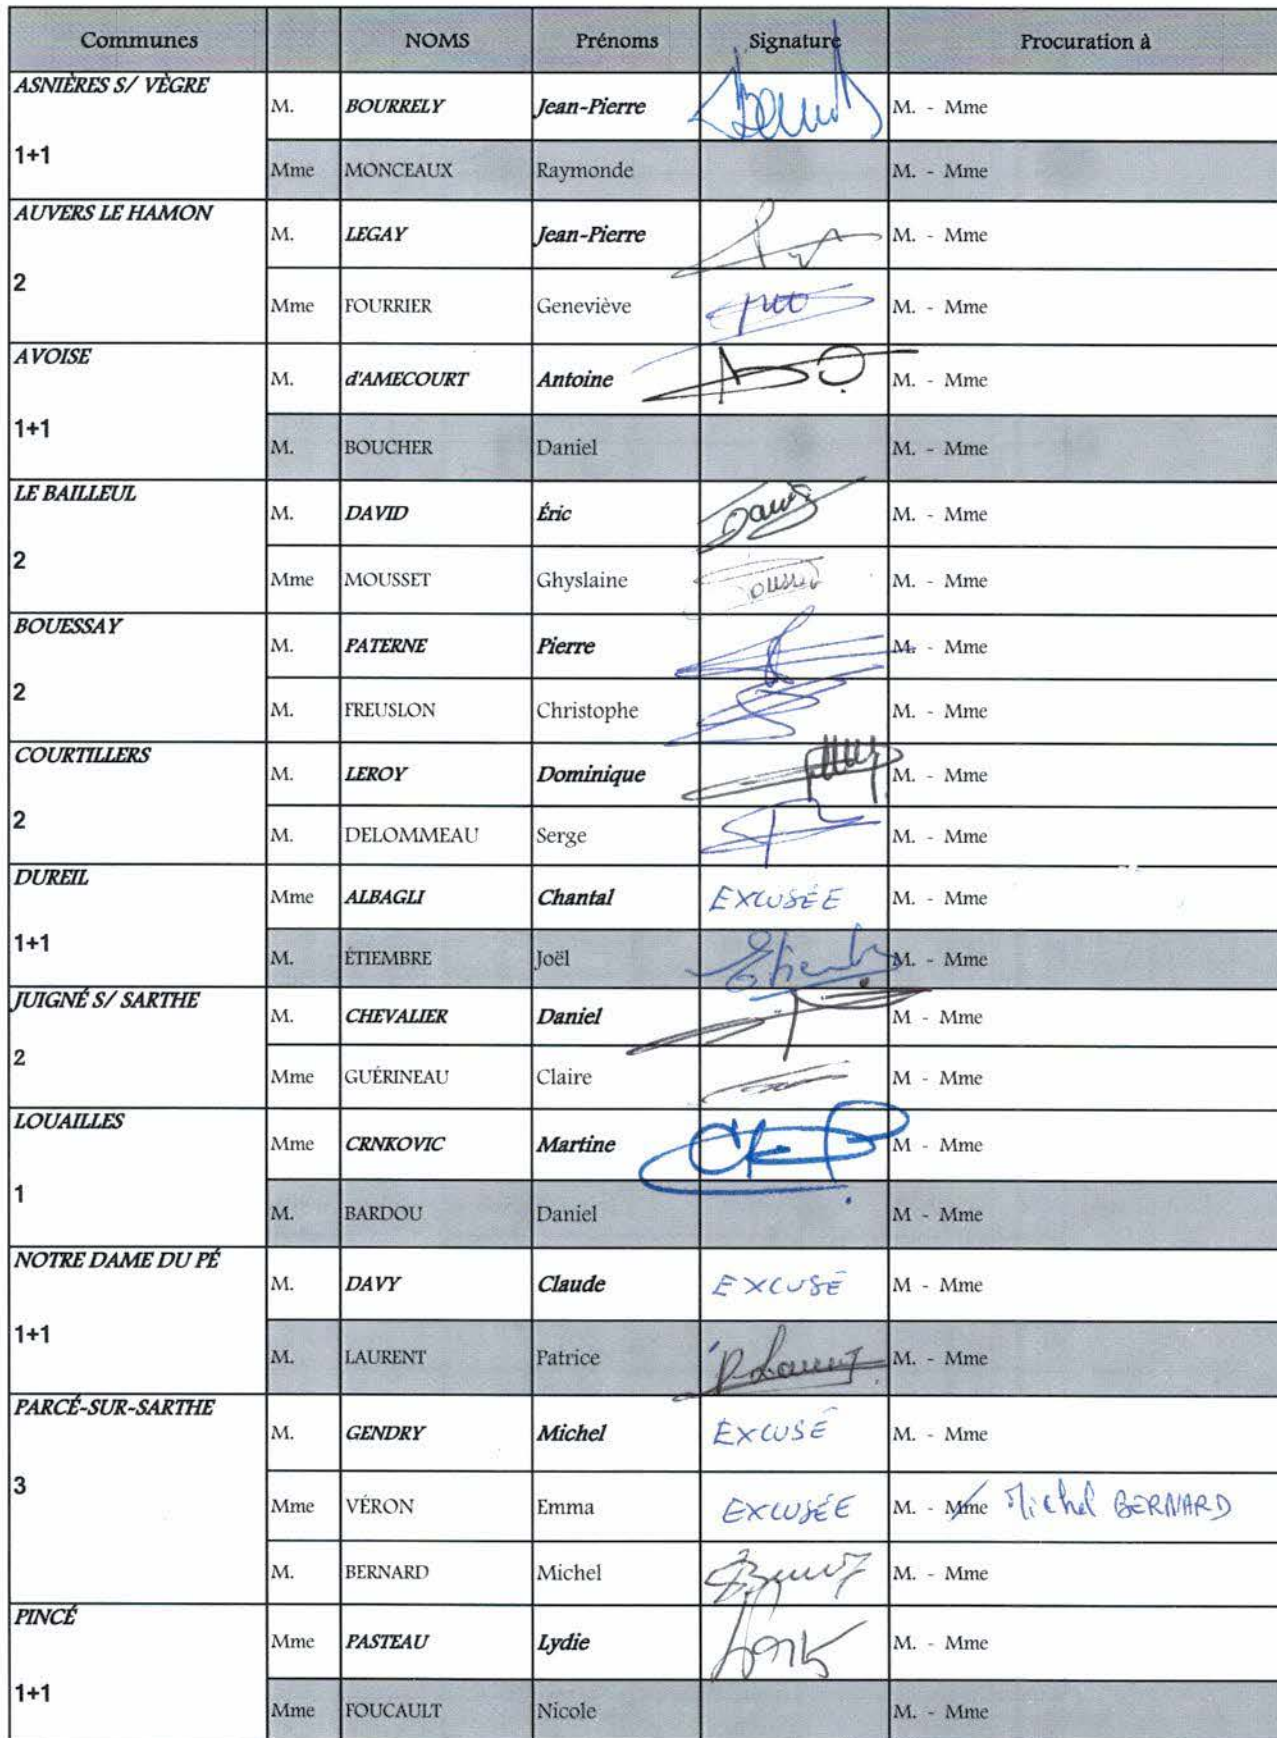 Communes NOMS Prénoms Signature Procuration à
ASNIÈRES S/ VÈGRE
M. BOURRELY Jean-Pierre M. - Mme
1+1
Mme MONCEAUX Raymonde M. - Mme
AUVERS LE HAMON
M. LEGAY Jean-Pierre M. - Mme
2
Mme FOURRIER Geneviève M. - Mme
AVOISE
M. d'AMECOURT Antoine M. - Mme
1+1
M. BOUCHER Daniel M. - Mme
LE BAILLEUL
M. DAVID Éric David M. - Mme
2
Mme MOUSSET Ghyslaine M. - Mme
BOUESSAY
M. PATERNE Pierre M. - Mme
2
M. FREUSLON Christophe M. - Mme
COURTILLERS
M. LEROY Dominique M. - Mme
2
M. DELOMMEAU Serge M. - Mme
DUREIL
Mme ALBAGLI Chantal EXCUSÉE M. - Mme
1+1
M. ÉTIEMBRE Joël M. - Mme
JUIGNÉ S/ SARTHE
M. CHEVALIER Daniel M - Mme
2
Mme GUÉRINEAU Claire M - Mme
LOUAILLES
Mme CRNKOVIC Martine M - Mme
1
M. BARDOU Daniel M - Mme
NOTRE DAME DU PÉ
M. DAVY Claude EXCUSÉ M - Mme
1+1
M. LAURENT Patrice P. Laurent M. - Mme
PARCÉ-SUR-SARTHE
M. GENDRY Michel EXCUSÉ M. - Mme
3
Mme VÉRON Emma EXCUSÉE M. - Mme Michel BERNARD
M. BERNARD Michel M. - Mme
PINCÉ
Mme PASTEAU Lydie M. - Mme
1+1
Mme FOUCAULT Nicole M. - Mme